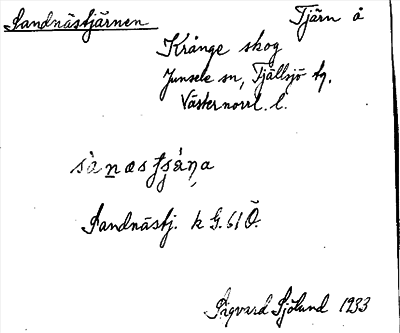 Sandnästjärnen Tjärn å
Krånge skog
Junsele sn, Fjällsjö tg.
Västernorrl. l.
Sandnästj. k G. 61 Ö.
Sigvard Sjölund 1933